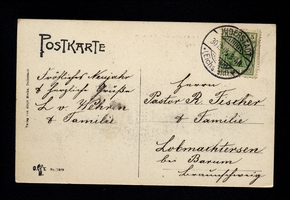 POSTKARTE
Fröhliches Neujahr
& herzlich Grüße
L. v. Wehren
& Familie
Herrn
Pastor R. Fischer
& Familie
Lobmachtersen
bei Barum
Braunschweig